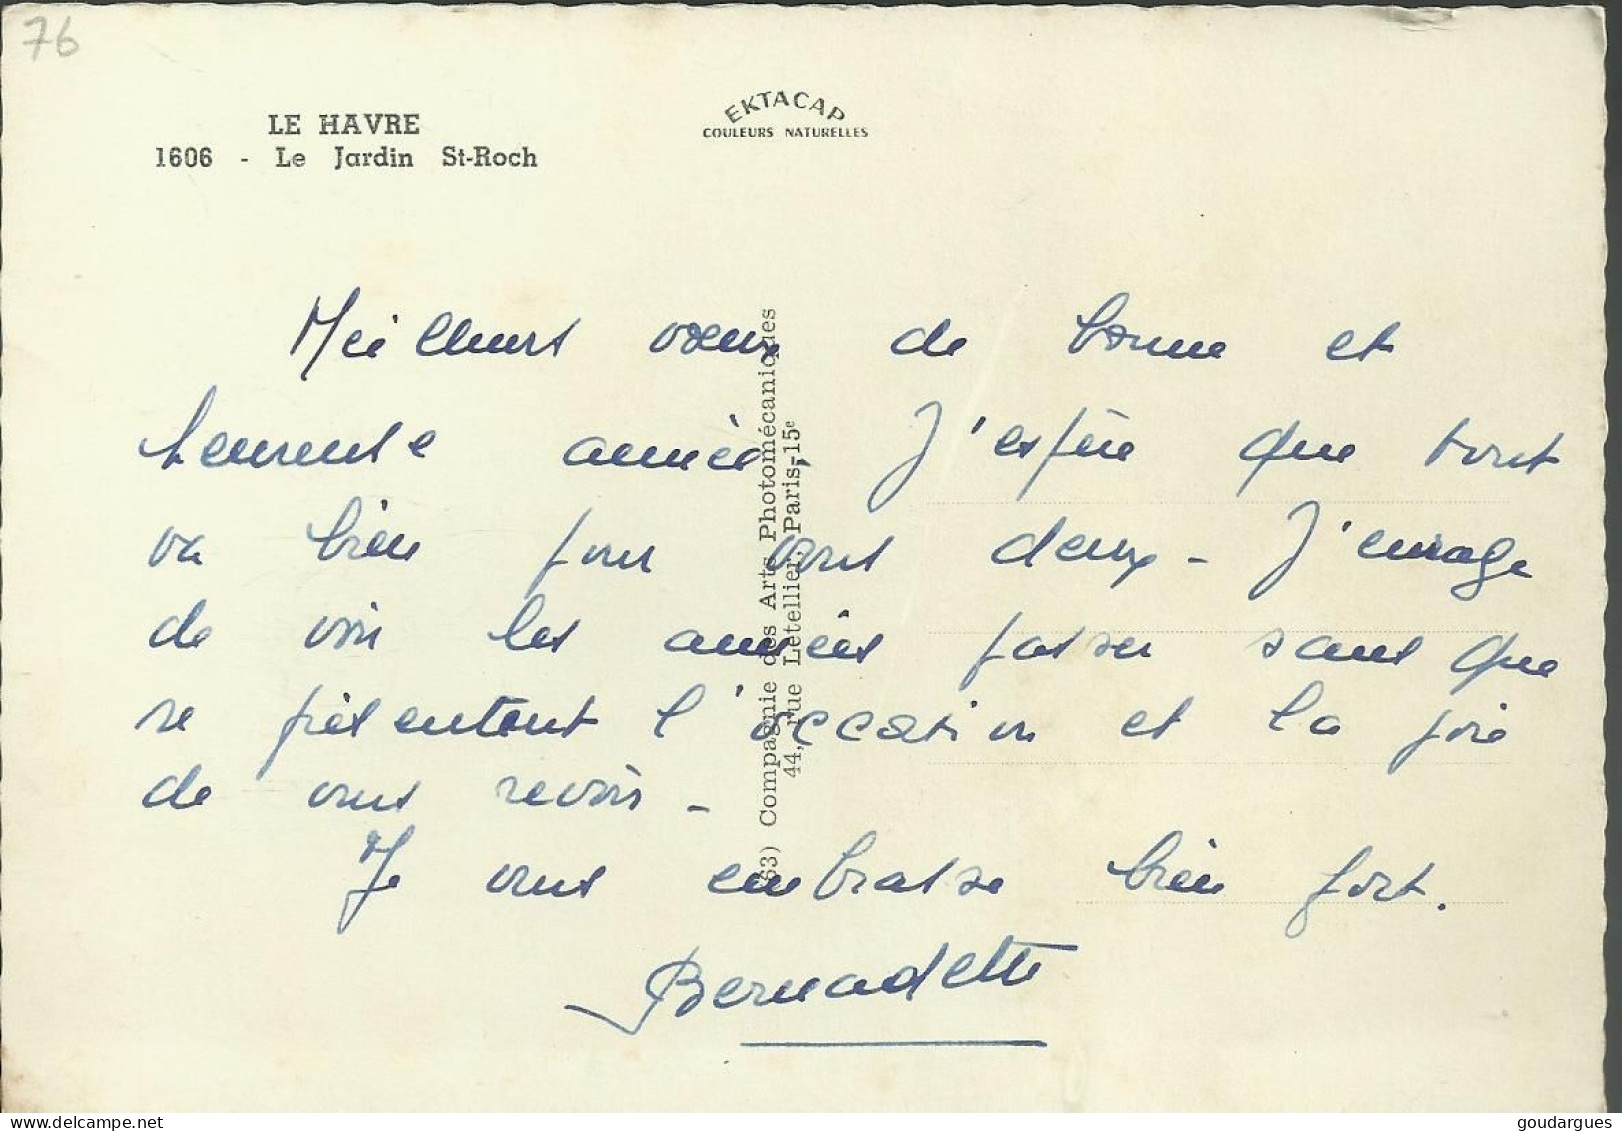 76
LE HAVRE
1606 - Le Jardin St-Roch
EKTACAP
COULEURS NATURELLES
Meilleurs vœux de bonne et
heureuse année. J'espère que tout
va bien pour vous deux - J'enrage
de voir les années passer sans que
se présentent l'occasion et la joie
de vous revoir -
Je vous embrasse bien fort.
Bernadette
63) Compagnie des Arts Photomécaniques
44, rue Letellier, Paris-15e
delcampe.net
goudargues